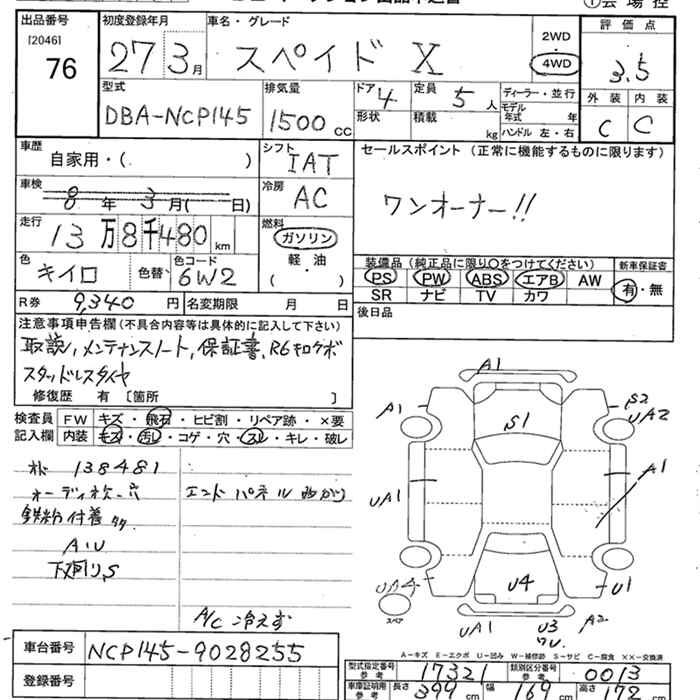 出品番号
[2046]
76
初度登録年月
27 3月
車名・グレード
スペイド X
2WD
4WD
評価点
3.5
型式
DBA-NCP145
排気量
1500cc
ドア 4
定員 5人
形状
積載 kg
ディーラー・並行
モデル年式 年
ハンドル 左・右
外装 内装
C C
車歴
自家用・( )
シフト
IAT
セールスポイント (正常に機能するものに限ります)
ワンオーナー!!
車検
8年 3月( 日)
冷房
AC
走行
13万8千480km
燃料
ガソリン
軽・油
( )
色
キイロ
色替
色コード
6W2
装備品 (純正品に限り○をつけてください)
PS PW ABS エアB AW
SR ナビ TV カワ
新車保証書
有・無
R券 9,340円
名変期限 月 日
後日品
注意事項申告欄 (不具合内容等は具体的に記入して下さい)
取説, メンテナンスノート, 保証書, R6キロケボ
スタッドレスタイヤ
修復歴 有 [箇所 ]
検査員 FW キズ・飛石・ヒビ割・リペア跡・×要
記入欄 内装 キズ・汚レ・コゲ・穴・スレ・キレ・破レ
138481
鉄粉付着
A・U
下廻りS
エンドパネル曲がり
A/C 冷えず
A1
A1
S1
S2
UA2
UA1
A1
UA4
U4
U1
スペア
UA1
U3
A2
A-キズ E-エクボ U-凹み W-補修跡 S-サビ C-腐食 XX-交換済
車台番号 NCP145-9028255
登録番号
型式指定番号 参考 17321
類別区分番号 参考 0013
車庫証明用 参考 長さ 399cm 幅 169cm 高さ 172cm